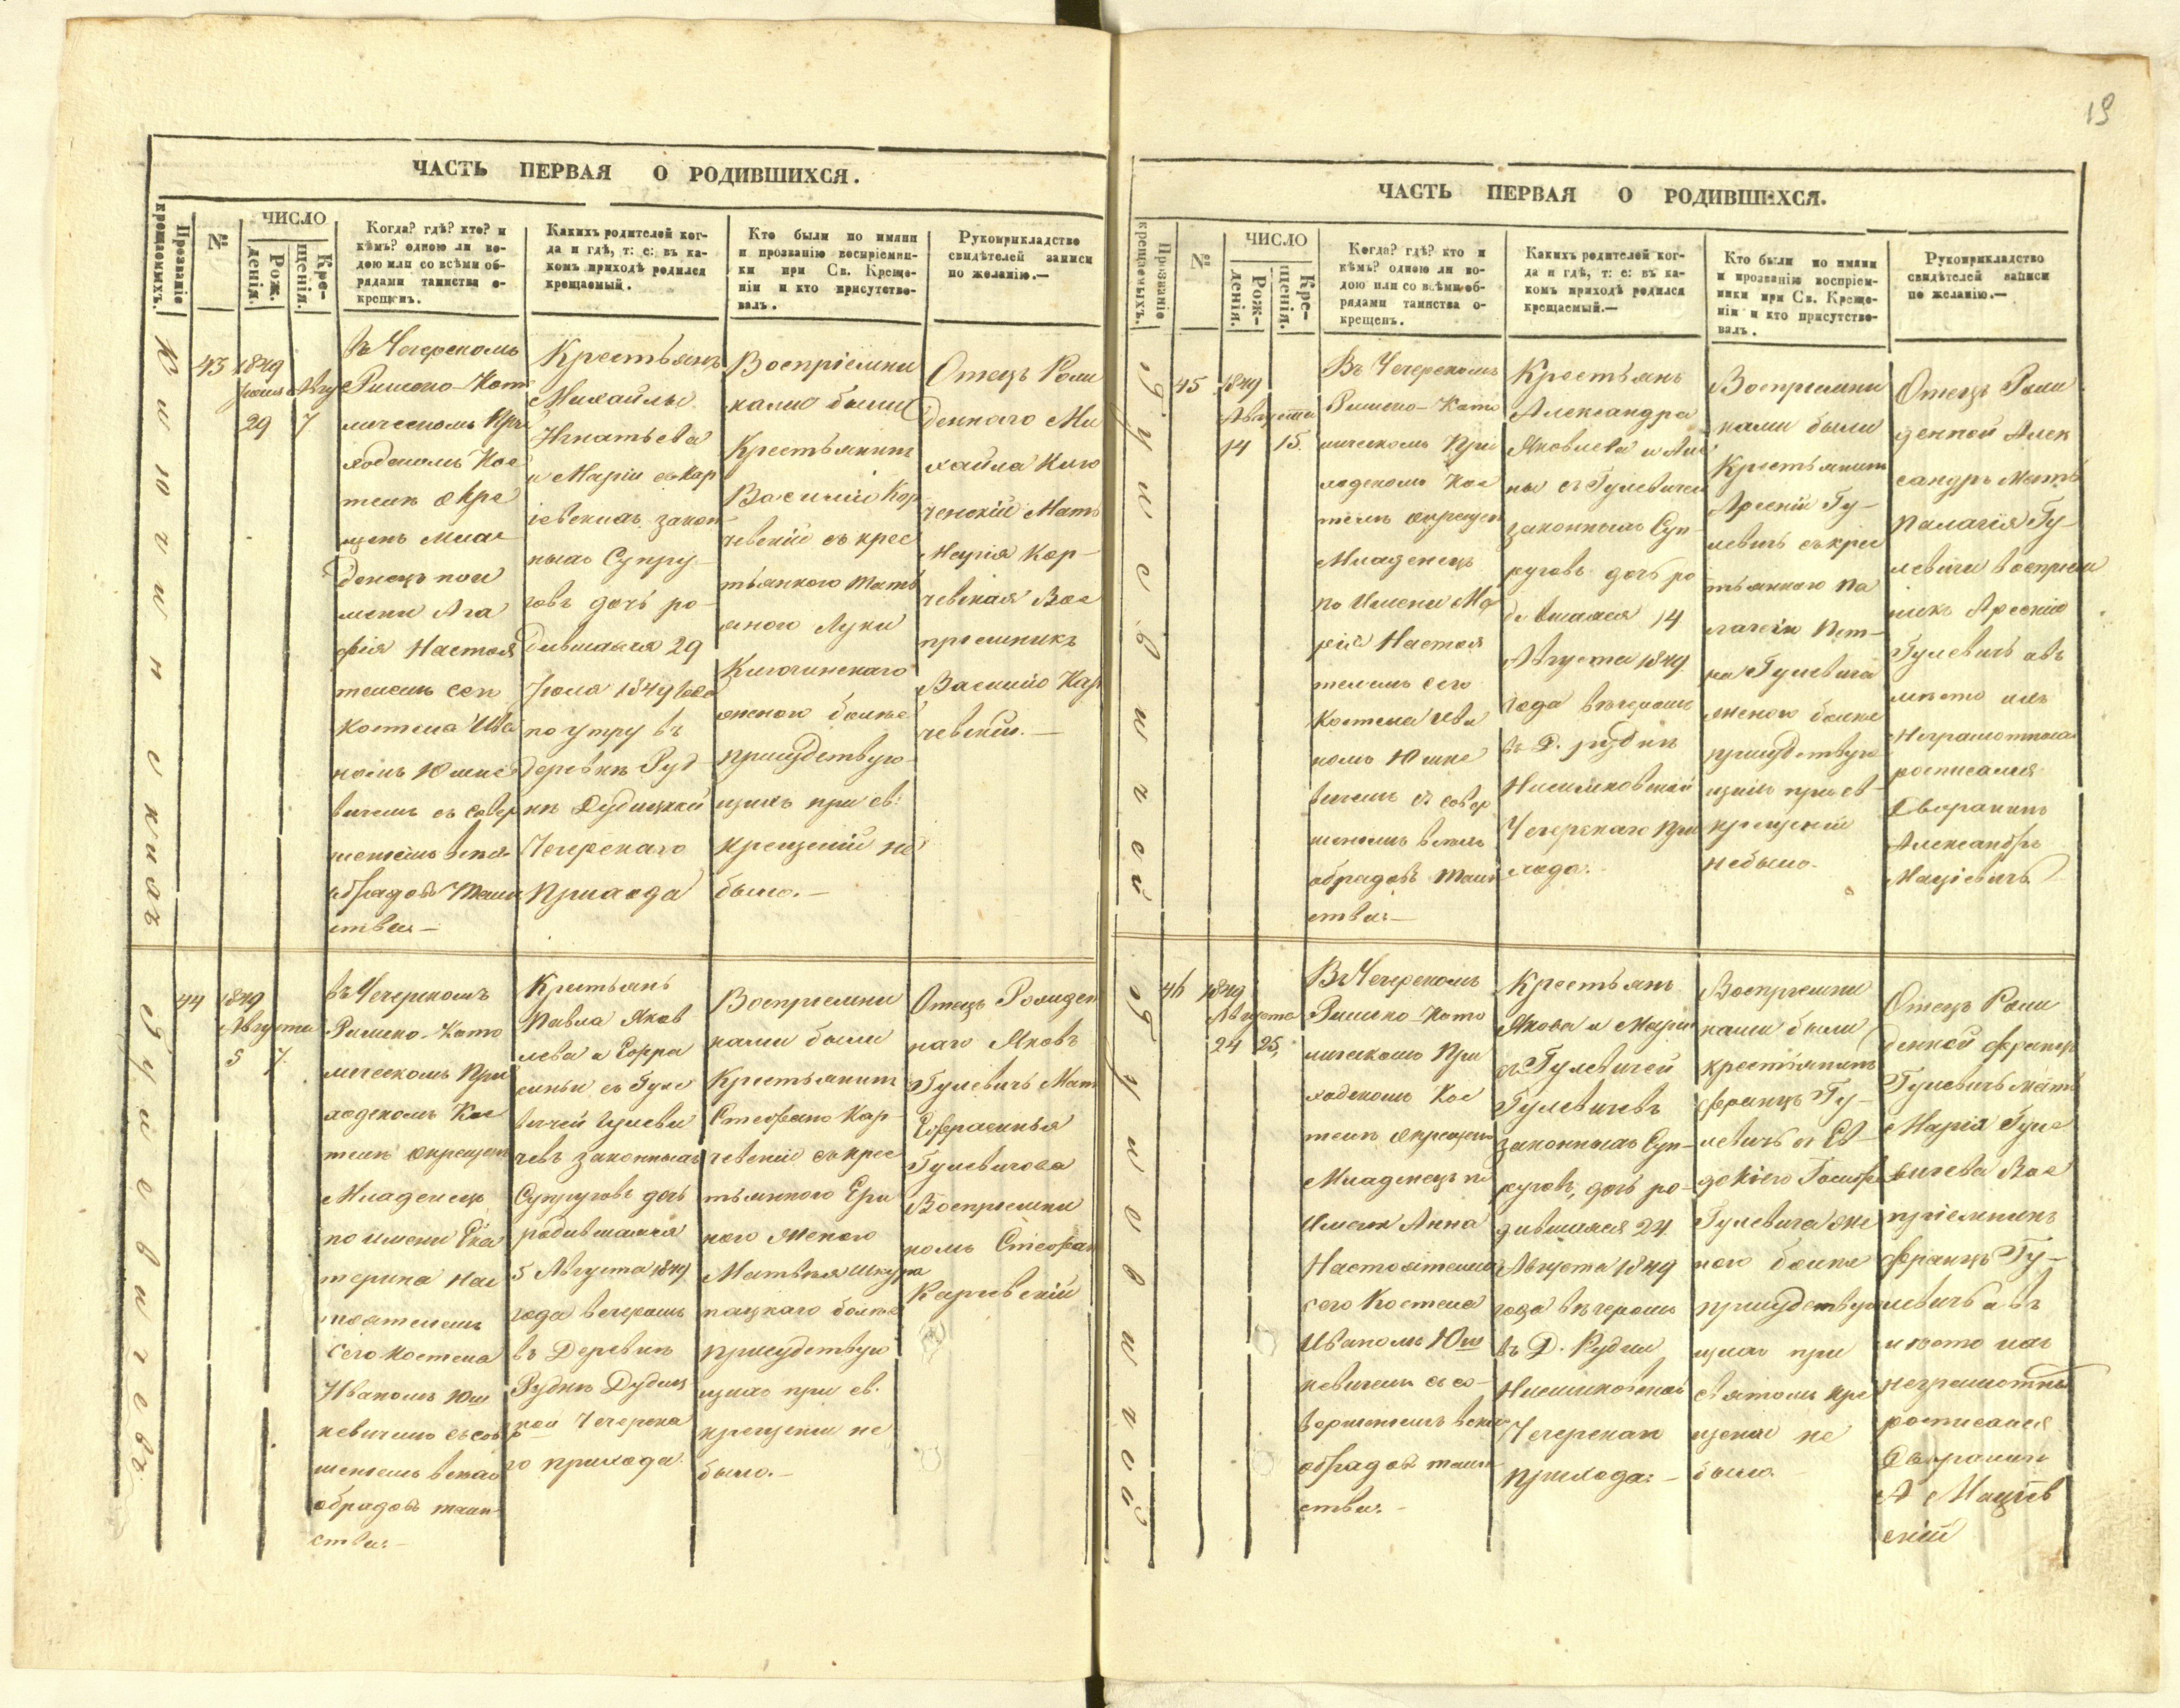 19
ЧАСТЬ ПЕРВАЯ О РОДИВШИХСЯ.
Прозваніе крещаемыхъ.
№
ЧИСЛО
Рож-
денія.
Кре-
щенія.
Когда? гдѣ? кто? и
кѣмъ? одною ли во-
дою или со всѣми об-
рядами таинства о-
крещенъ.
Какихъ родителей ког-
да и гдѣ, т: е: въ ка-
комъ приходѣ родился
крещаемый.
Кто были по имяни
и прозванію воспріемни-
ки при Св. Креще-
ніи и кто присутство-
валъ.
Рукоприкладство
свидѣтелей записи
по желанію.—
43
1849
Іюля Авгу
29 7
въ Чечерскомъ
Римско-Като
лическомъ При
ходскомъ Кос
телѣ окре
щенъ Мла
денецъ по и
мени Ага
фія Настоя
телемъ сего
костела Ива
номъ Юшке
вичемъ съ совер
шеніемъ всѣхъ
обрядовъ Таин
ства.—
Крестьянъ
Михайлы
Игнатьева
и Маріи съ Кар
чевскихъ закон
ныхъ Супру-
говъ дочь ро-
дившаяся 29
Іюля 1849 года
по утру въ
деревнѣ Руд-
нѣ Дудицкой
Чечерскаго
Прихода
Воспріемни
ками были
Крестьянинъ
Василій Кар
чевскій съ крес
тьянкою
женою Луки
присудствую-
щихъ при св:
крещеніи не
было.—
Отецъ Рож
деннаго Ми
хайла
Мать
Марія Кар-
чевская Вос
пріемникъ
Василій Кар
чевскій.—
44
1849
Августа
5 7
въ Чечерскомъ
Римско-Като
лическомъ При
ходскомъ Кос
телѣ окрещенъ
Младенецъ
по имени Ека
терина Нас
тоятелемъ
сего костела
Иваномъ Юш
кевичемъ съ сов
шеніемъ всѣхъ
обрядовъ таин
ства.—
Крестьянъ
Павла Яков
лева и
съ Гуле
вичей Гулеви
чевъ законныхъ
Супруговъ дочь
родившаяся
5 Августа 1849
года вечеромъ
въ Деревнѣ
Руднѣ Дудиц
кой Чечерска
го прихода
Воспріемни
ками были
Крестьянинъ
Стефанъ Кар-
чевскій съ крес
тьянкою
женою
Матвѣя
присудствую
щихъ при св.
крещеніи не
было.—
Отецъ Рожден
наго Яковъ
Гулевичъ Мать
Гулевичова
Воспріемни
комъ Стефан
Карчевскій
ЧАСТЬ ПЕРВАЯ О РОДИВШИХСЯ.
Прозваніе крещаемыхъ.
№
ЧИСЛО
Рож-
денія.
Кре-
щенія.
Когда? гдѣ? кто и
кѣмъ? одною ли во-
дою или со всѣми об-
рядами таинства о-
крещенъ.
Какихъ родителей ког-
да и гдѣ, т: е: въ ка-
комъ приходѣ родился
крещаемый.—
Кто были по имяни
и прозванію воспріем-
ники при Св. Креще-
ніи и кто присутство-
валъ.
Рукоприкладство
свидѣтелей записи
по желанію.—
Гулевичей
45
1849
Августа
14 15.
Въ Чечерскомъ
Римско-Като
лическомъ При
ходскомъ Кос
телѣ окрещен
Младенецъ
по Имени Ма
рія Настоя
телемъ сего
Костела Ива
номъ Юшке
вичемъ съ совер
шеніемъ всѣхъ
обрядовъ Таин
ства.—
Крестьянъ
Александра
Яковлева и
съ Гулевичей
законныхъ Суп-
руговъ дочь ро
дившаяся 14
Августа 1849
года вечеромъ
въ Д. Руднѣ
Чечерскаго При
хода.
Воспріемни
ками были
Крестьянинъ
Арсеній Гу-
левичъ съ крес
тьянкою Па
лагеи Пет-
ра Гулевича
женою болѣе
присудствую
щихъ при св-
крещеніи
не было.
Отецъ Рож
денной Алек
сандръ Мать
Палагія Гу-
левичи Воспріем
никъ Арсеній
Гулевичъ а въ
мѣсто ихъ
Неграмотныхъ
росписался
Дворянинъ
Александръ
Маціевичъ
Гулевичовой
46
1849
Августа
24 25,
Въ Чечерскомъ
Римско-Като
лическомъ При
ходскомъ Кос
телѣ окрещенъ
Младенецъ по
Имени Анна
Настоятелемъ
сего Костела
Иваномъ Юш
кевичемъ съ со-
вершеніемъ всѣхъ
обрядовъ таин-
ства.—
Крестьянъ
Якова и Маріи
съ Гулевичей
Гулевичевъ
законныхъ Суп-
руговъ, дочь ро-
дившаяся 24
Августа 1849
года вечеромъ
въ Д. Рудни
Чечерскаго
прихода.—
Воспріемни
ками были
крестьянинъ
Францъ Гу-
левичъ съ Ев-
докіею
Гулевича же
ною болѣе
присудствую
щихъ при
святомъ кре
щеніи не
было.
Отецъ Рож
денной
Гулевичъ Мать
Марія Гуле
вичева Вос
пріемникъ
Францъ Гу-
левичъ а въ
мѣсто ихъ
неграмотны
росписался
Дворянинъ
А Маціев
скій